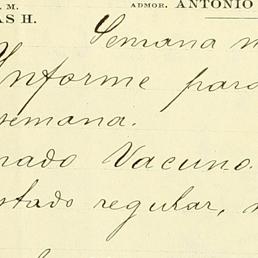 . M.
AS H.
ADMOR. ANTONIO
Semana
Informe para
semana.
nado Vacuno.
stado regular,